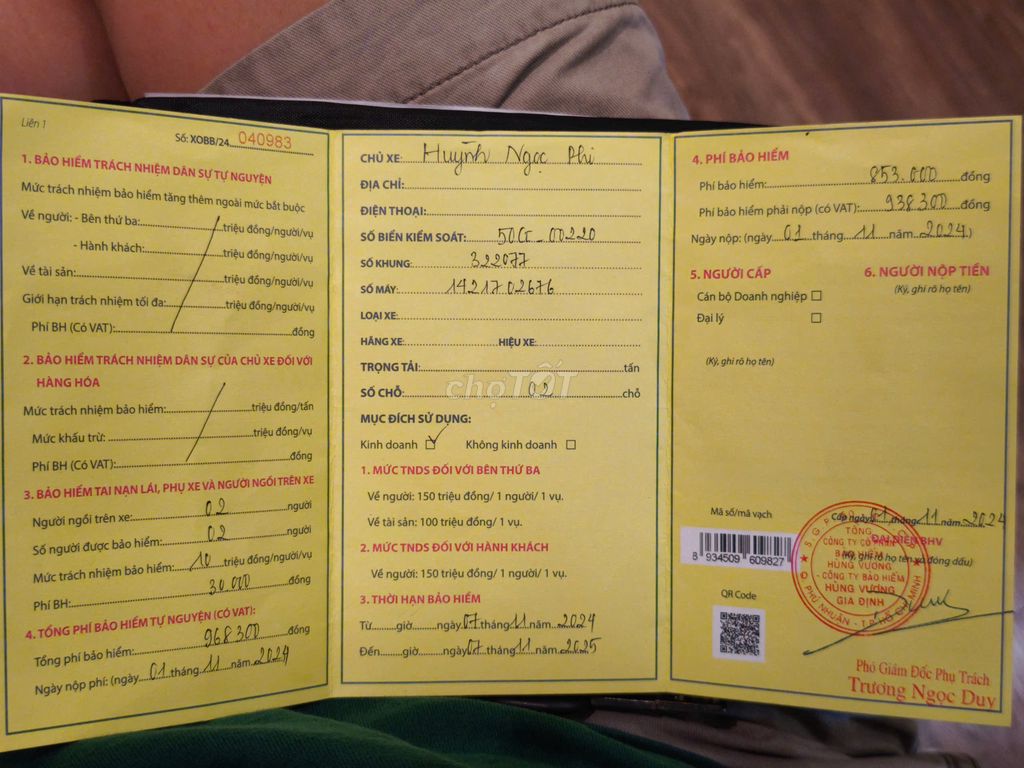 Liên 1
Số: XOBB/24 040983
1. BẢO HIỂM TRÁCH NHIỆM DÂN SỰ TỰ NGUYỆN
Mức trách nhiệm bảo hiểm tăng thêm ngoài mức bắt buộc
Về người: - Bên thứ ba: triệu đồng/người/vụ
- Hành khách: triệu đồng/người/vụ
Về tài sản: triệu đồng/người/vụ
Giới hạn trách nhiệm tối đa: triệu đồng/người/vụ
Phí BH (Có VAT): đồng
2. BẢO HIỂM TRÁCH NHIỆM DÂN SỰ CỦA CHỦ XE ĐỐI VỚI
HÀNG HÓA
Mức trách nhiệm bảo hiểm: triệu đồng/tấn
Mức khấu trừ: triệu đồng/vụ
Phí BH (Có VAT): đồng
3. BẢO HIỂM TAI NẠN LÁI, PHỤ XE VÀ NGƯỜI NGỒI TRÊN XE
Người ngồi trên xe: 02 người
Số người được bảo hiểm: 02 người
Mức trách nhiệm bảo hiểm: 10 triệu đồng/người/vụ
Phí BH: 30.000 đồng
4. TỔNG PHÍ BẢO HIỂM TỰ NGUYỆN (CÓ VAT):
Tổng phí bảo hiểm: 968300 đồng
Ngày nộp phí: (ngày 01 tháng 11 năm 2024
CHỦ XE: Huỳnh Ngọc Phi
ĐỊA CHỈ:
ĐIỆN THOẠI:
SỐ BIỂN KIỂM SOÁT: 50G-00220
SỐ KHUNG: 322077
SỐ MÁY: 1421702676
LOẠI XE:
HÃNG XE: HIỆU XE:
TRỌNG TẢI: tấn
chợTỐT
SỐ CHỖ: 02 chỗ
MỤC ĐÍCH SỬ DỤNG:
Kinh doanh ☑ Không kinh doanh ☐
1. MỨC TNDS ĐỐI VỚI BÊN THỨ BA
Về người: 150 triệu đồng/ 1 người/ 1 vụ.
Về tài sản: 100 triệu đồng/ 1 vụ.
2. MỨC TNDS ĐỐI VỚI HÀNH KHÁCH
Về người: 150 triệu đồng/ 1 người/ 1 vụ.
3. THỜI HẠN BẢO HIỂM
Từ giờ ngày 07 tháng 11 năm 2024
Đến giờ ngày 07 tháng 11 năm 2025
4. PHÍ BẢO HIỂM
Phí bảo hiểm: 853.000 đồng
Phí bảo hiểm phải nộp (có VAT): 938300 đồng
Ngày nộp: (ngày 01 tháng 11 năm 2024)
5. NGƯỜI CẤP 6. NGƯỜI NỘP TIỀN
(Ký, ghi rõ họ tên)
Cán bộ Doanh nghiệp ☐
Đại lý ☐
(Ký, ghi rõ họ tên)
Mã số/mã vạch
8 934509 609827
Cấp ngày 01 tháng 11 năm 2024
ĐẠI DIỆN BHV
(Ký, ghi rõ họ tên và đóng dấu)
TỔNG
CÔNG TY CỔ PHẦN
BẢO HIỂM
HÙNG VƯƠNG
- CÔNG TY BẢO HIỂM
HÙNG VƯƠNG
GIA ĐỊNH
Q PHÚ NHUẬN - T.P HỒ CHÍ MINH
QR Code
Phó Giám Đốc Phụ Trách
Trương Ngọc Duy